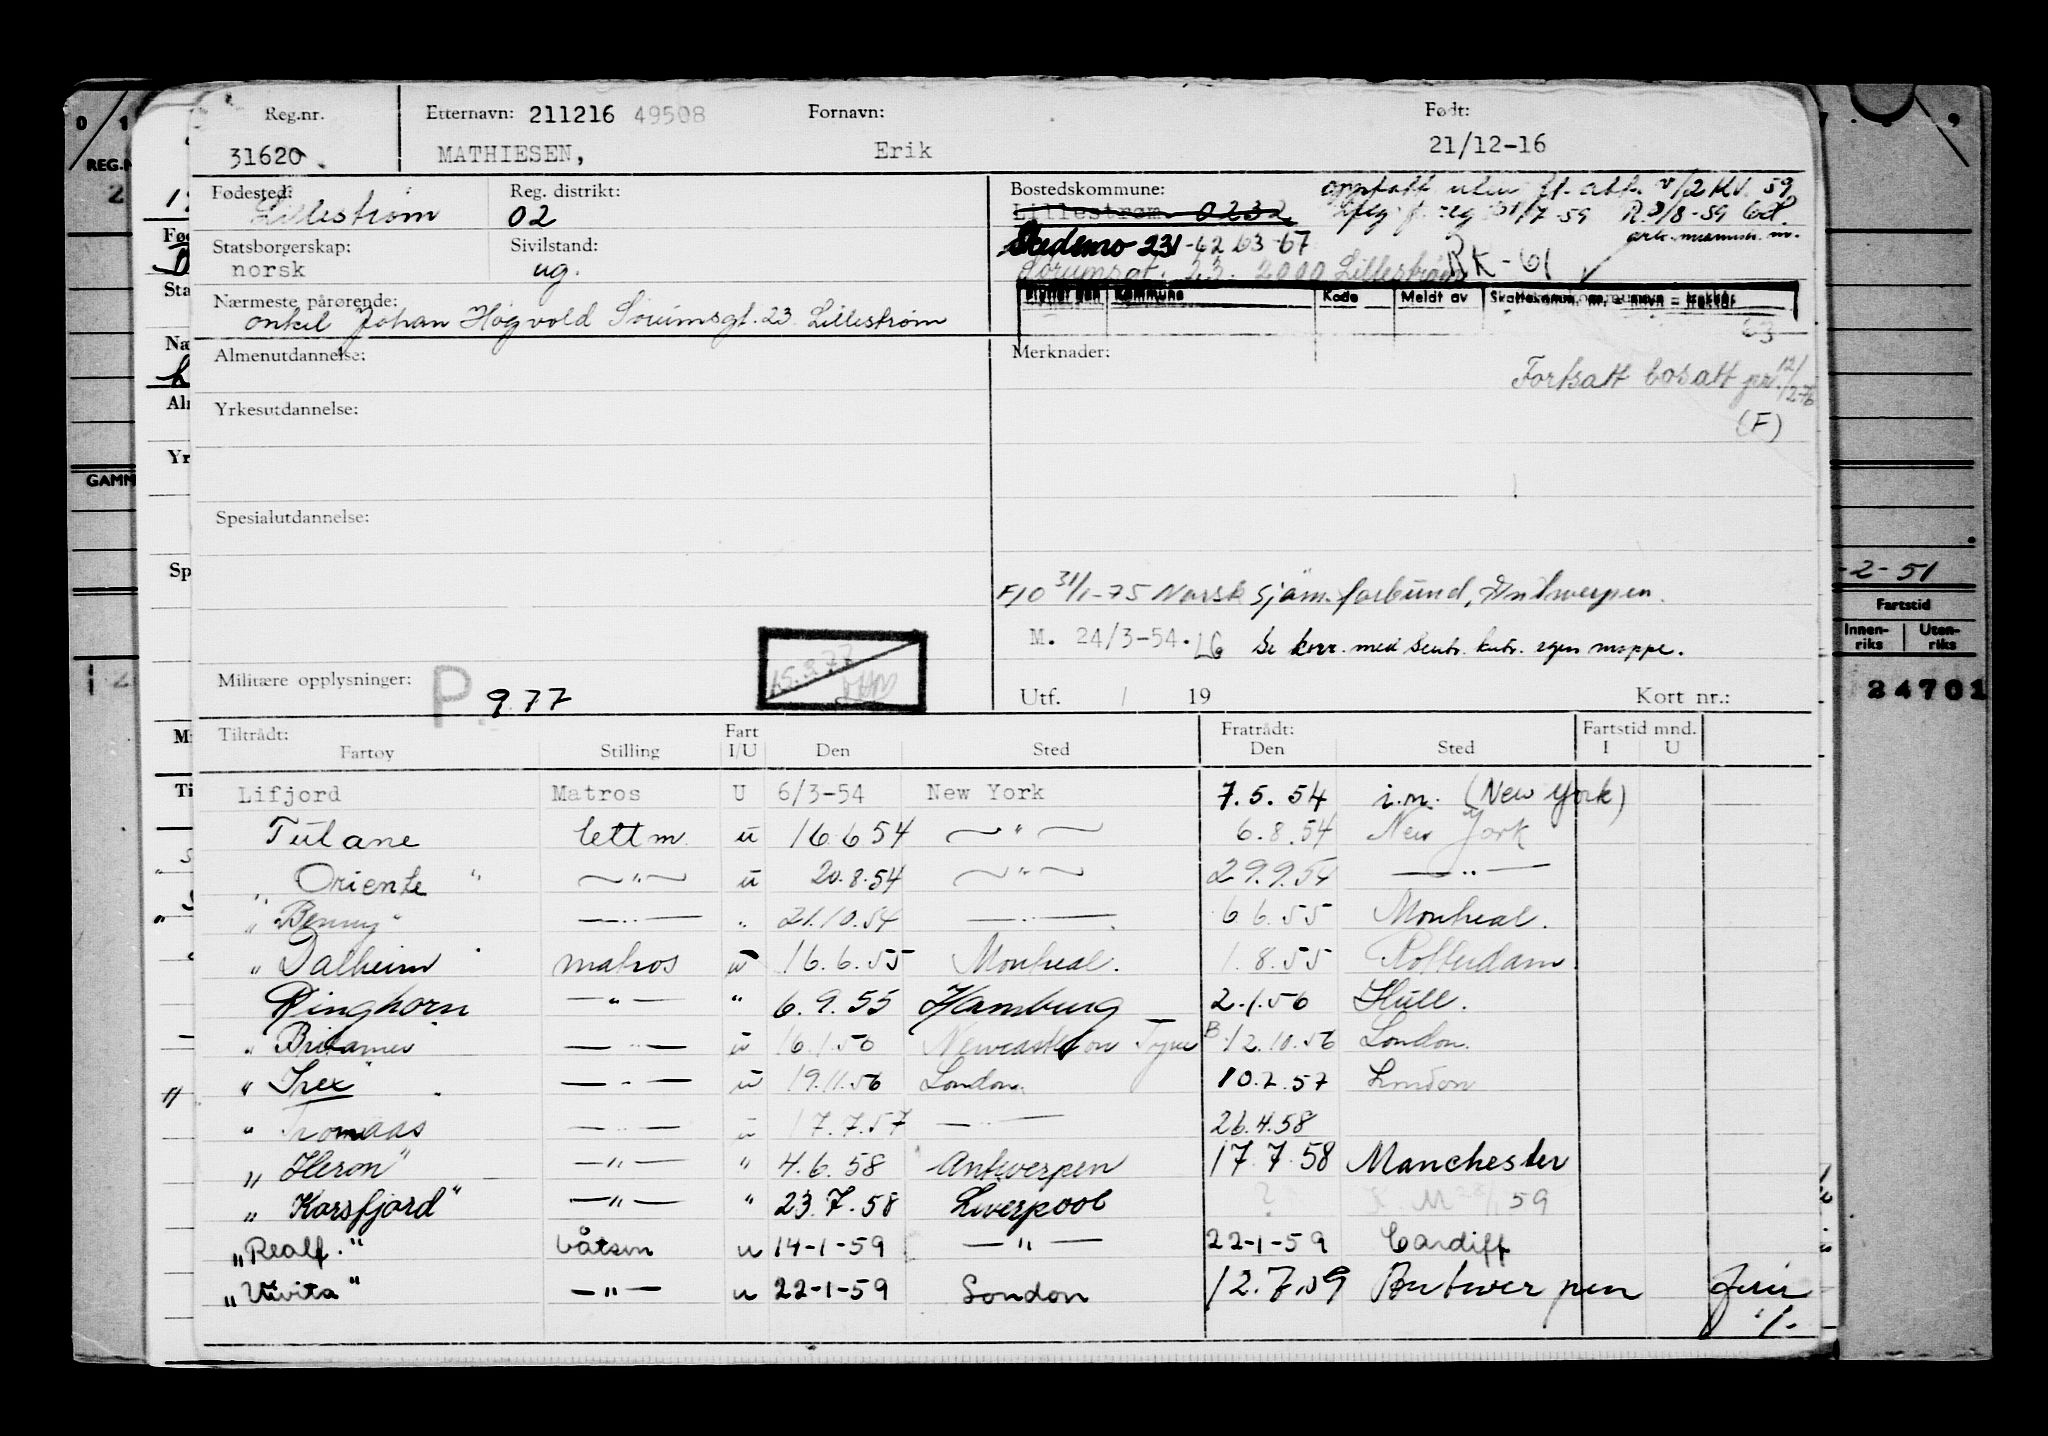 Reg.nr. Etternavn: 211216 49508 Fornavn: Født:
31620 MATHIESEN, Erik 21/12-16
Fødested: Reg. distrikt: Bostedskommune:
Lillestrøm 02 Lillestrøm 0232
Statsborgerskap: Sivilstand: 231-62 63-67
norsk ug. 2000 Lillestrøm RK-61
Nærmeste pårørende: Kommune Kode Meldt av
onkel Johan Høgvold Sørumsgt. 23 Lillestrøm
63
Almenutdannelse: Merknader:
Fortsatt bosatt pr. 12/2-76
(F)
Yrkesutdannelse:
Spesialutdannelse:
F10 31/1-75 Norsk Sjøm.forbund, Antwerpen.
M. 24/3-54. LG Se korr. med Sentr. kntr. egen mappe.
Militære opplysninger: P. 9.77 15.3.77
Utf. / 19 Kort nr.:
Tiltrådt: Fart Fratrådt: Fartstid mnd.
Fartøy Stilling I/U Den Sted Den Sted I U
Lifjord Matros U 6/3-54 New York 7.5.54 i.m. (New York)
Tulane lettm. u 16.6.54 — " — 6.8.54 New York
" Oriente " — " — u 20.8.54 — " — 29.9.54 — " —
" Benny " — " — " 21.10.54 — " — 6.6.55 Montreal.
" Dalheim " matros u 16.6.55 Montreal. 1.8.55 Rotterdam
Ringhorn — " — " 6.9.55 Hamburg 2.1.56 Hull.
" — " — u 16.1.56 Newcastle on Tyne B. 12.10.56 London.
" Trex " — " — u 19.11.56 London. 10.2.57 London
" Tromaas — " — u 17.7.57 — " — 26.4.58
" Heron " — " — " 4.6.58 Antwerpen 17.7.58 Manchester
" Korsfjord " — " — " 23.7.58 Liverpool ? 59
" Realf. " båtsm u 14-1-59 — " — 22-1-59 Cardiff
" Vivita " — " — u 22-1-59 London 12.7.59 Antwerpen
REG.N
GAMM
-2-51
Fartstid
Innen-riks Uten-riks
24701